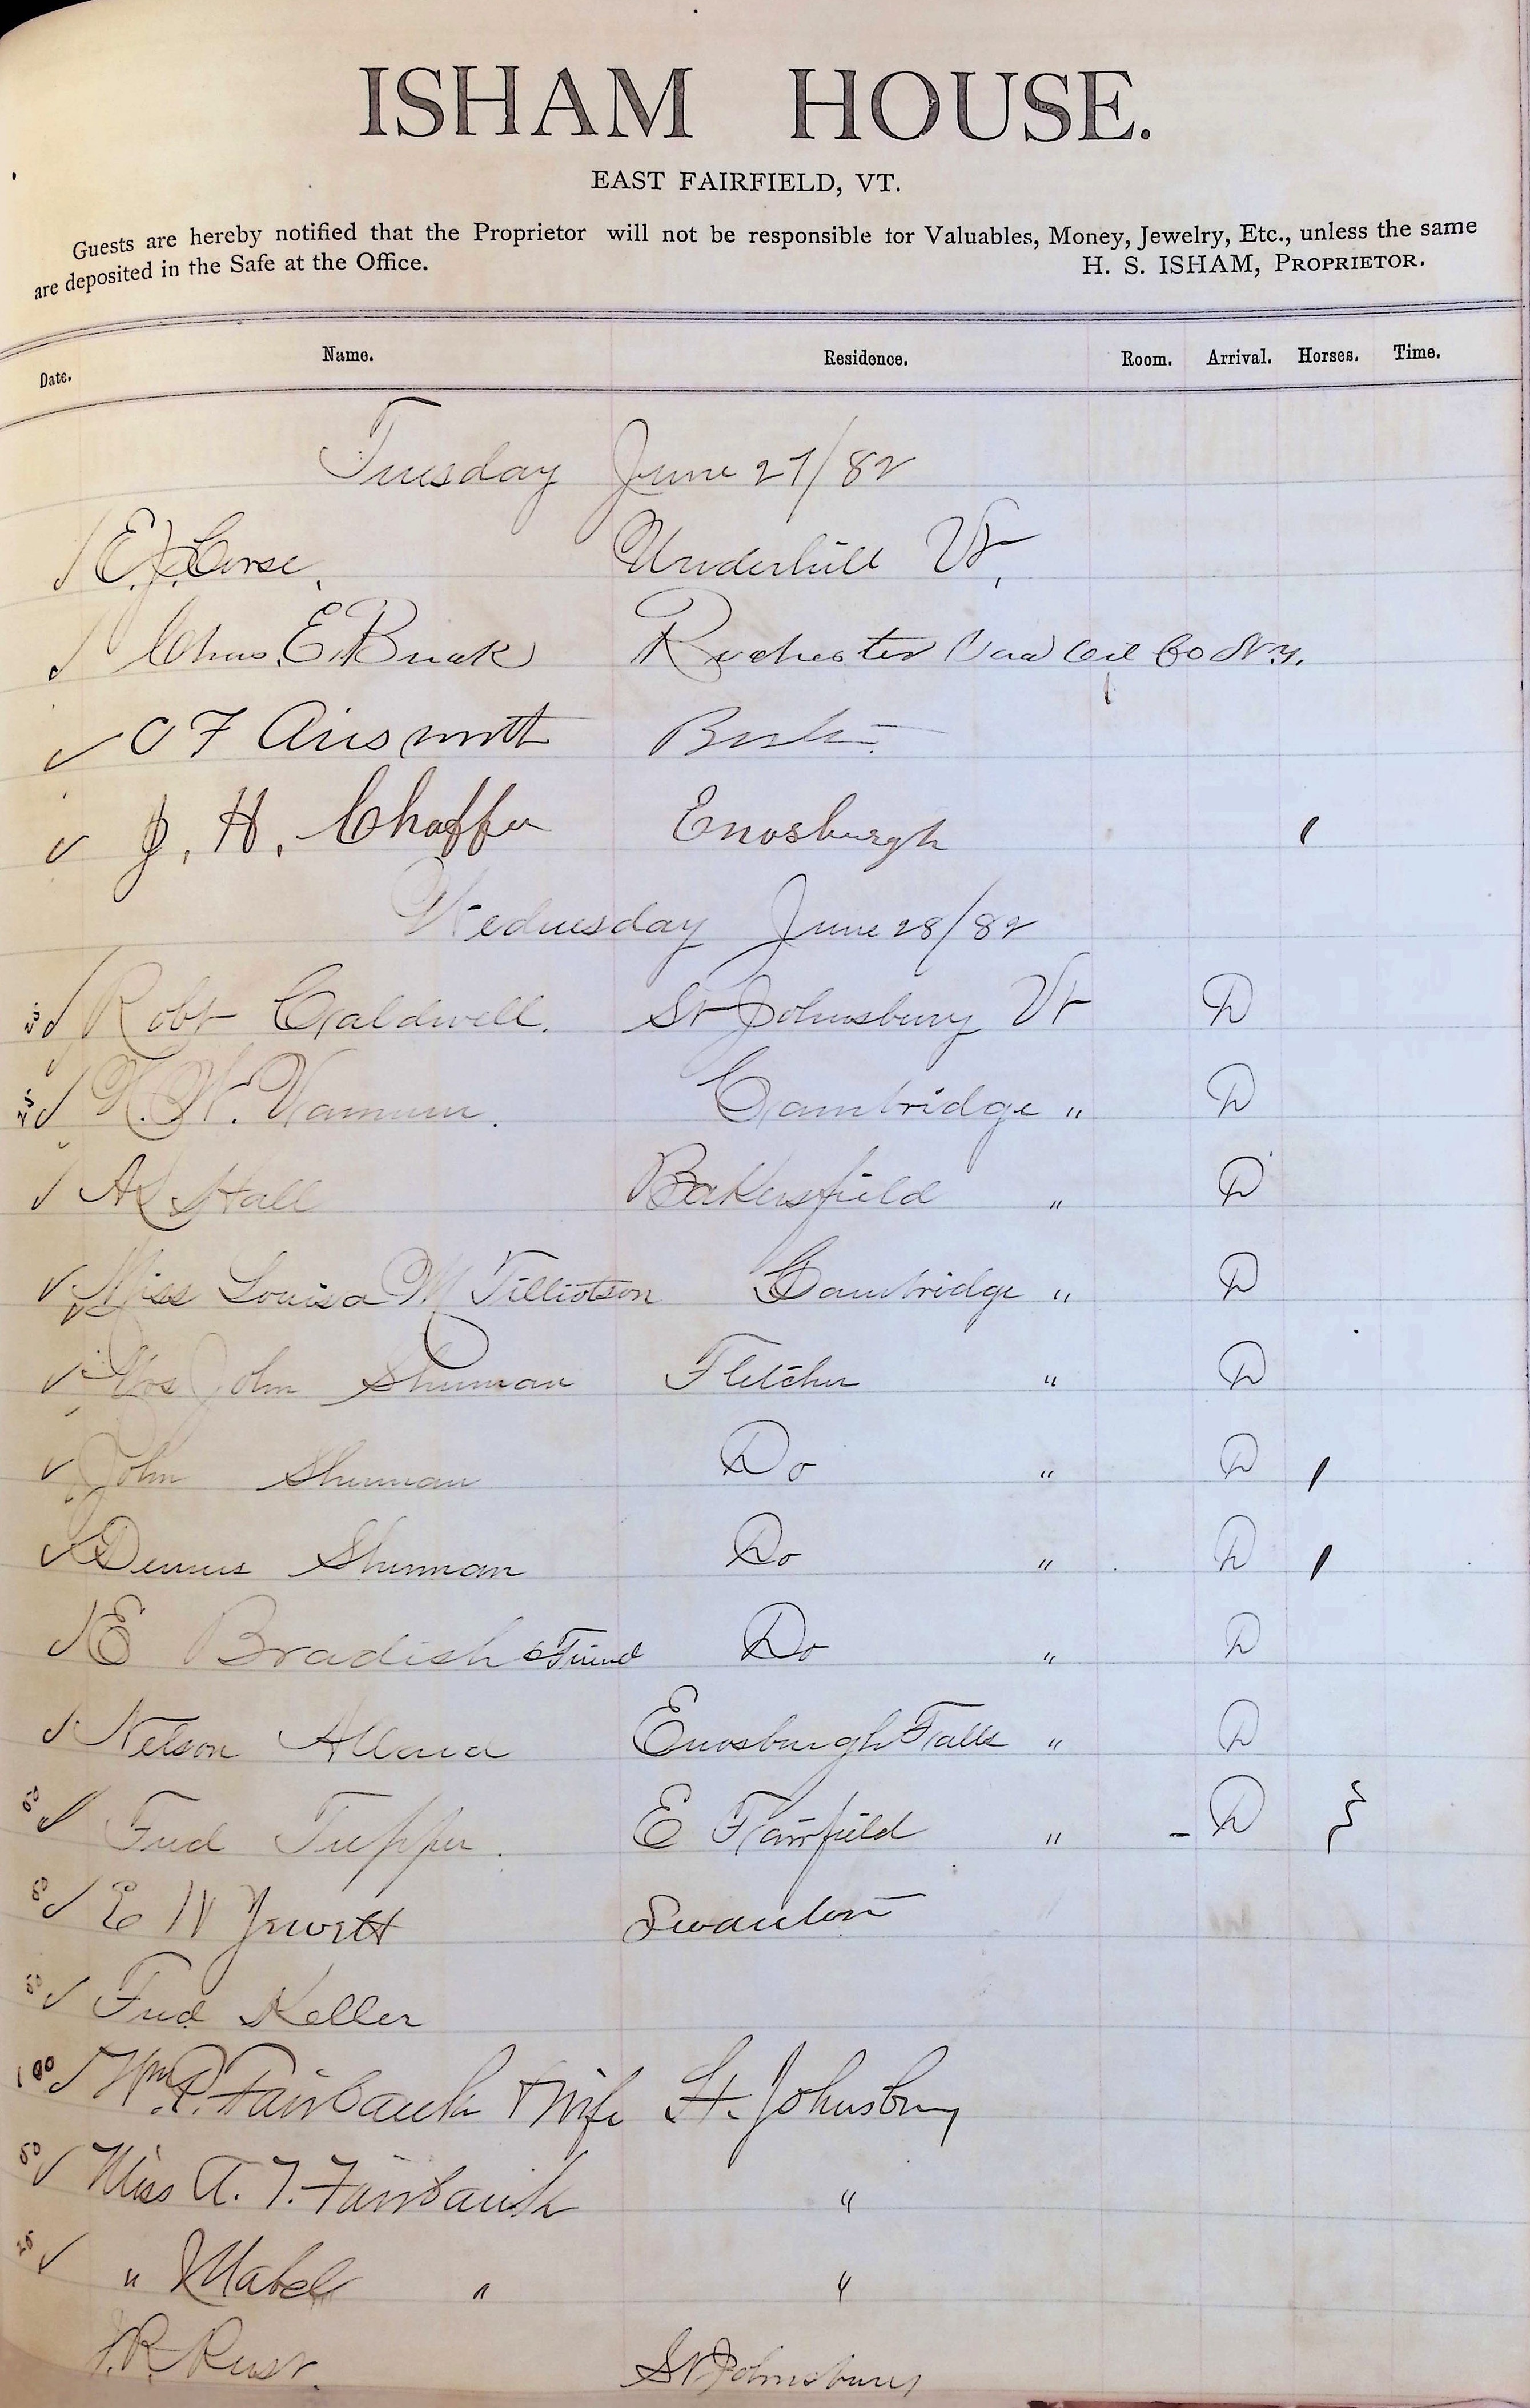 ISHAM HOUSE.
EAST FAIRFIELD, VT.
Guests are hereby notified that the Proprietor will not be responsible for Valuables, Money, Jewelry, Etc., unless the same
are deposited in the Safe at the Office. H. S. ISHAM, PROPRIETOR.
Date. Name. Residence. Room. Arrival. Horses. Time.
Tuesday June 27/82
E. J. Corse. Underhill Vt.
Chas. E. Rochester Oil Co N.y.
C F Ainsworth
J. H. Chaffee Enosburgh
Wednesday June 28/82
25 Robt Caldwell. St Johnsbury Vt D
25 W. Varnum. Cambridge " D
Hall Bakersfield " D
Miss Louisa M Tilliotson Cambridge " D
Mrs John Shuman Fletcher " D
John Shuman Do " D
Dennis Shuman Do " D
E Bradish & Friend Do " D
Nelson Allard Enosburgh Falls " D
50 Fred Tupper. E Fairfield " D
50 E W Jewett Swanton
50 Fred Keller
100 Wm P. Fairbanks & Wife St. Johnsbury
50 Miss A. T. Fairbanks "
25 " Mabel " "
R. Rust. St Johnsbury